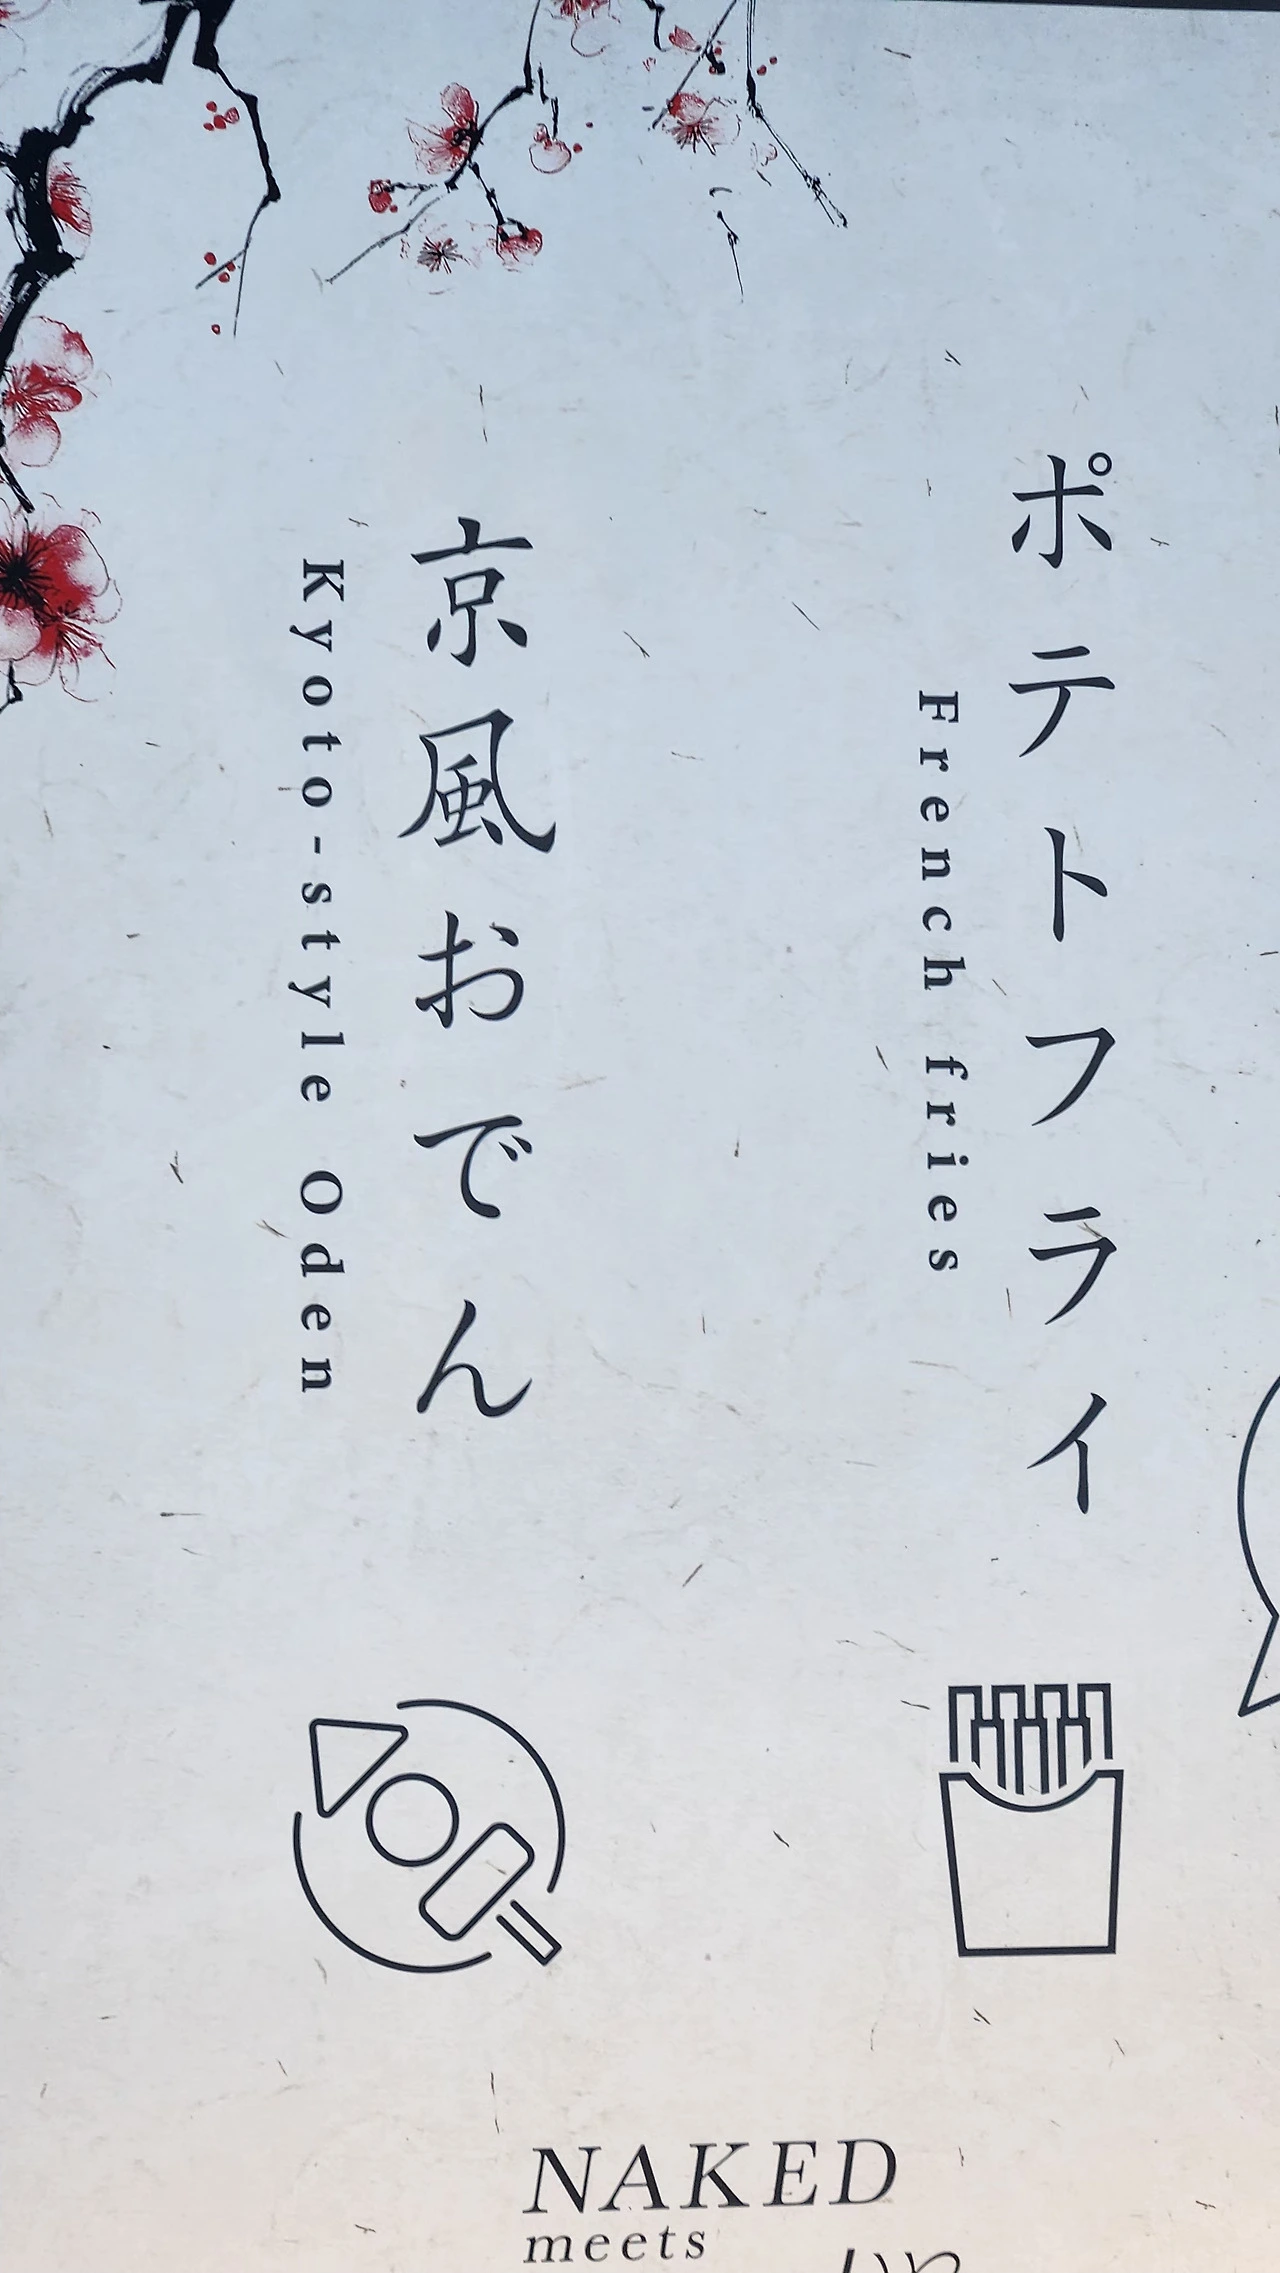 ポテトフライ
French fries
京風おでん
Kyoto-style Oden
NAKED
meets